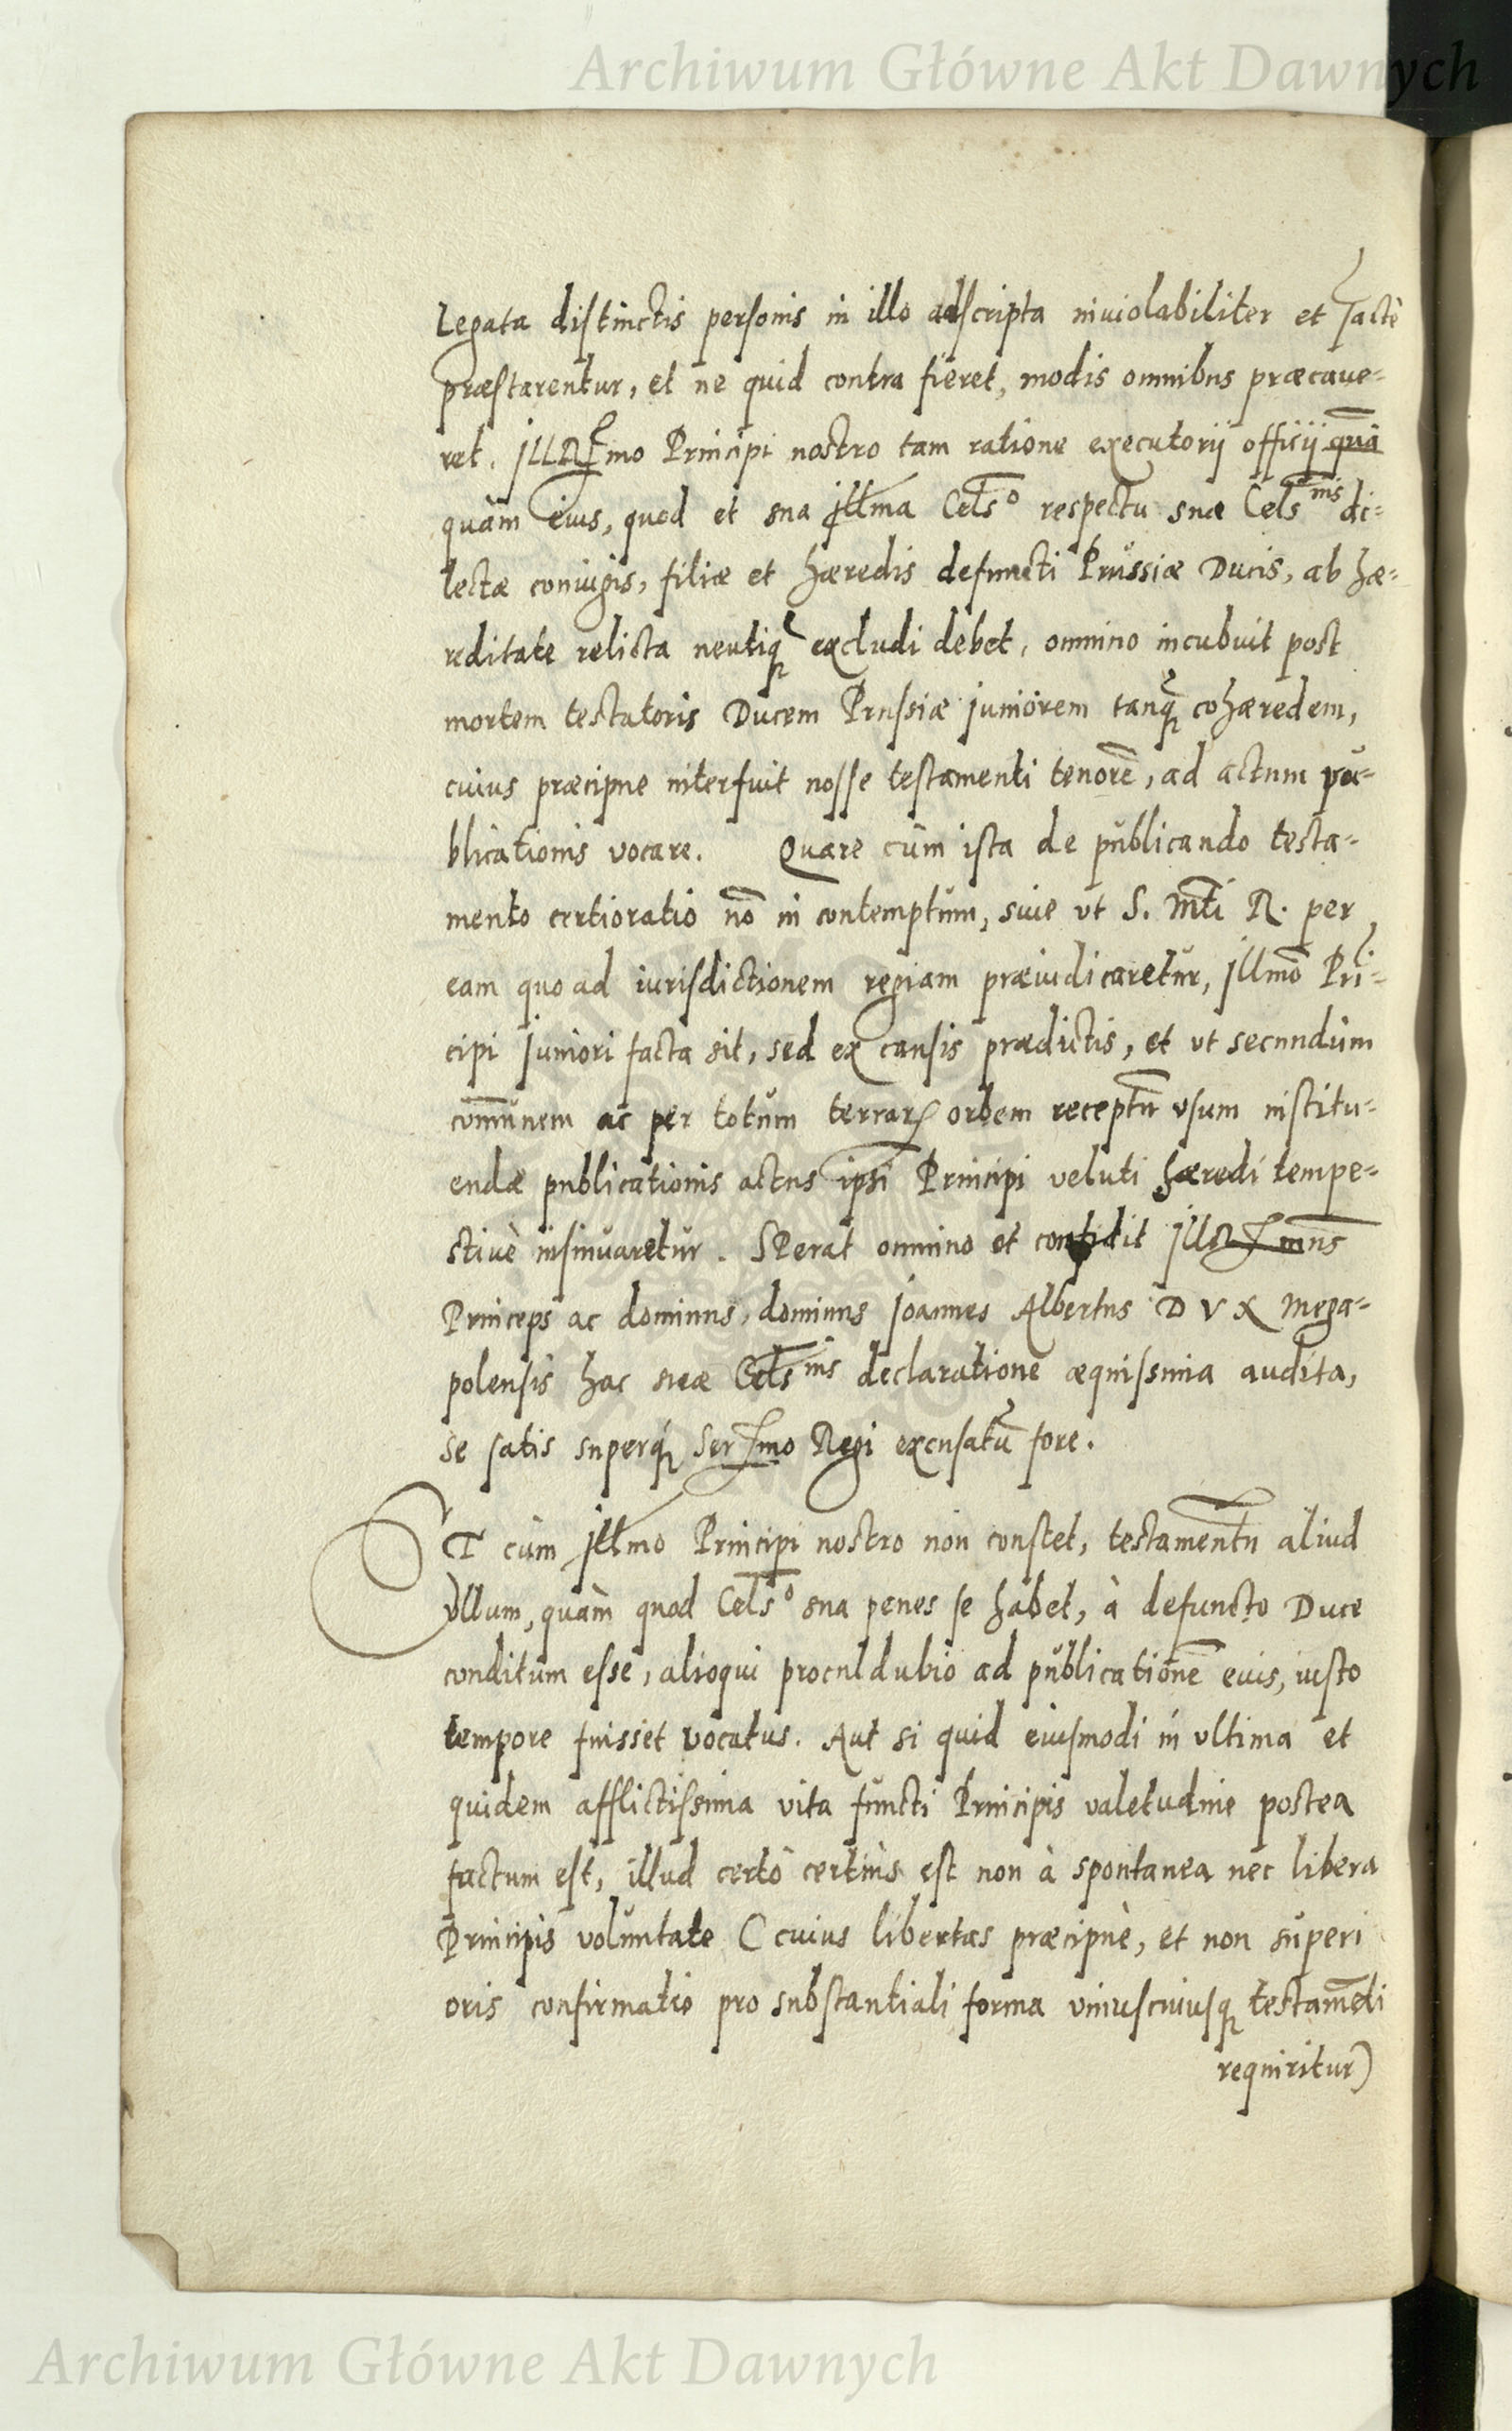 Archiwum Główne Akt Dawnych
Legata distinctis personis in illo adscripta inuiolabiliter et
præstarentur, et ne quid contra fieret, modis omnibus præcaue-
ret. Principi nostro tam ratione executorij officij quā
quàm eius, quod et sua Jllma Cels° respectu suæ Cels^nis di-
lectæ coniugis, filiæ et hæredis defuncti Prussiæ Ducis, ab hæ-
reditate relicta neutiq excludi debet, omnino incubuit post
mortem testatoris Ducem Prussiæ juniorem tanq cohæredem,
cuius præcipue interfuit nosse testamenti tenorē, ad actum pu-
blicationis vocare. Quare cùm ista de publicando testa-
mento certioratio nō in contemptum, siue vt S. Mti R. per
eam quo ad iurisdictionem regiam præiudicaretur, Jllmo Pri-
cipi Juniori facta sit, sed ex causis prædictis, et vt secundùm
com̄unem ac per totum terrarꝝ orbem receptū vsum institu-
endæ publicationis actus ipsi Principi veluti hæredi tempe-
stiuè insinuaretur. SPerat omnino et confidit
Princeps ac dominus, dominus Joannes Albertus DVX Mega-
polensis hac suæ Cels^nis declaratione æquissima audita,
se satis superq́ Serssmo Regi excusatū fore.
ET cùm Jllmo Principi nostro non constet, testamentū aliud
vllum, quàm quod Cels° sua penes se habet, à defuncto Duce
conditum esse, alioqui proculdubio ad publicationē eius, iusto
tempore fuisset vocatus. Aut si quid eiusmodi in vltima et
quidem afflictissima vita functi Principis valetudine postea
factum est, illud certò certius est non à spontanea nec libera
Principis voluntate (cuius libertas præcipuè, et non superi
oris confirmatio pro substantiali forma vniuscuiusq testamēti
requiritur)
Archiwum Główne Akt Dawnych